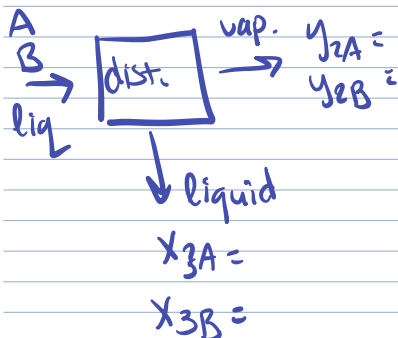 A
B
liq
dist.
vap.
y2A =
y2B =
liquid
x3A =
x3B =